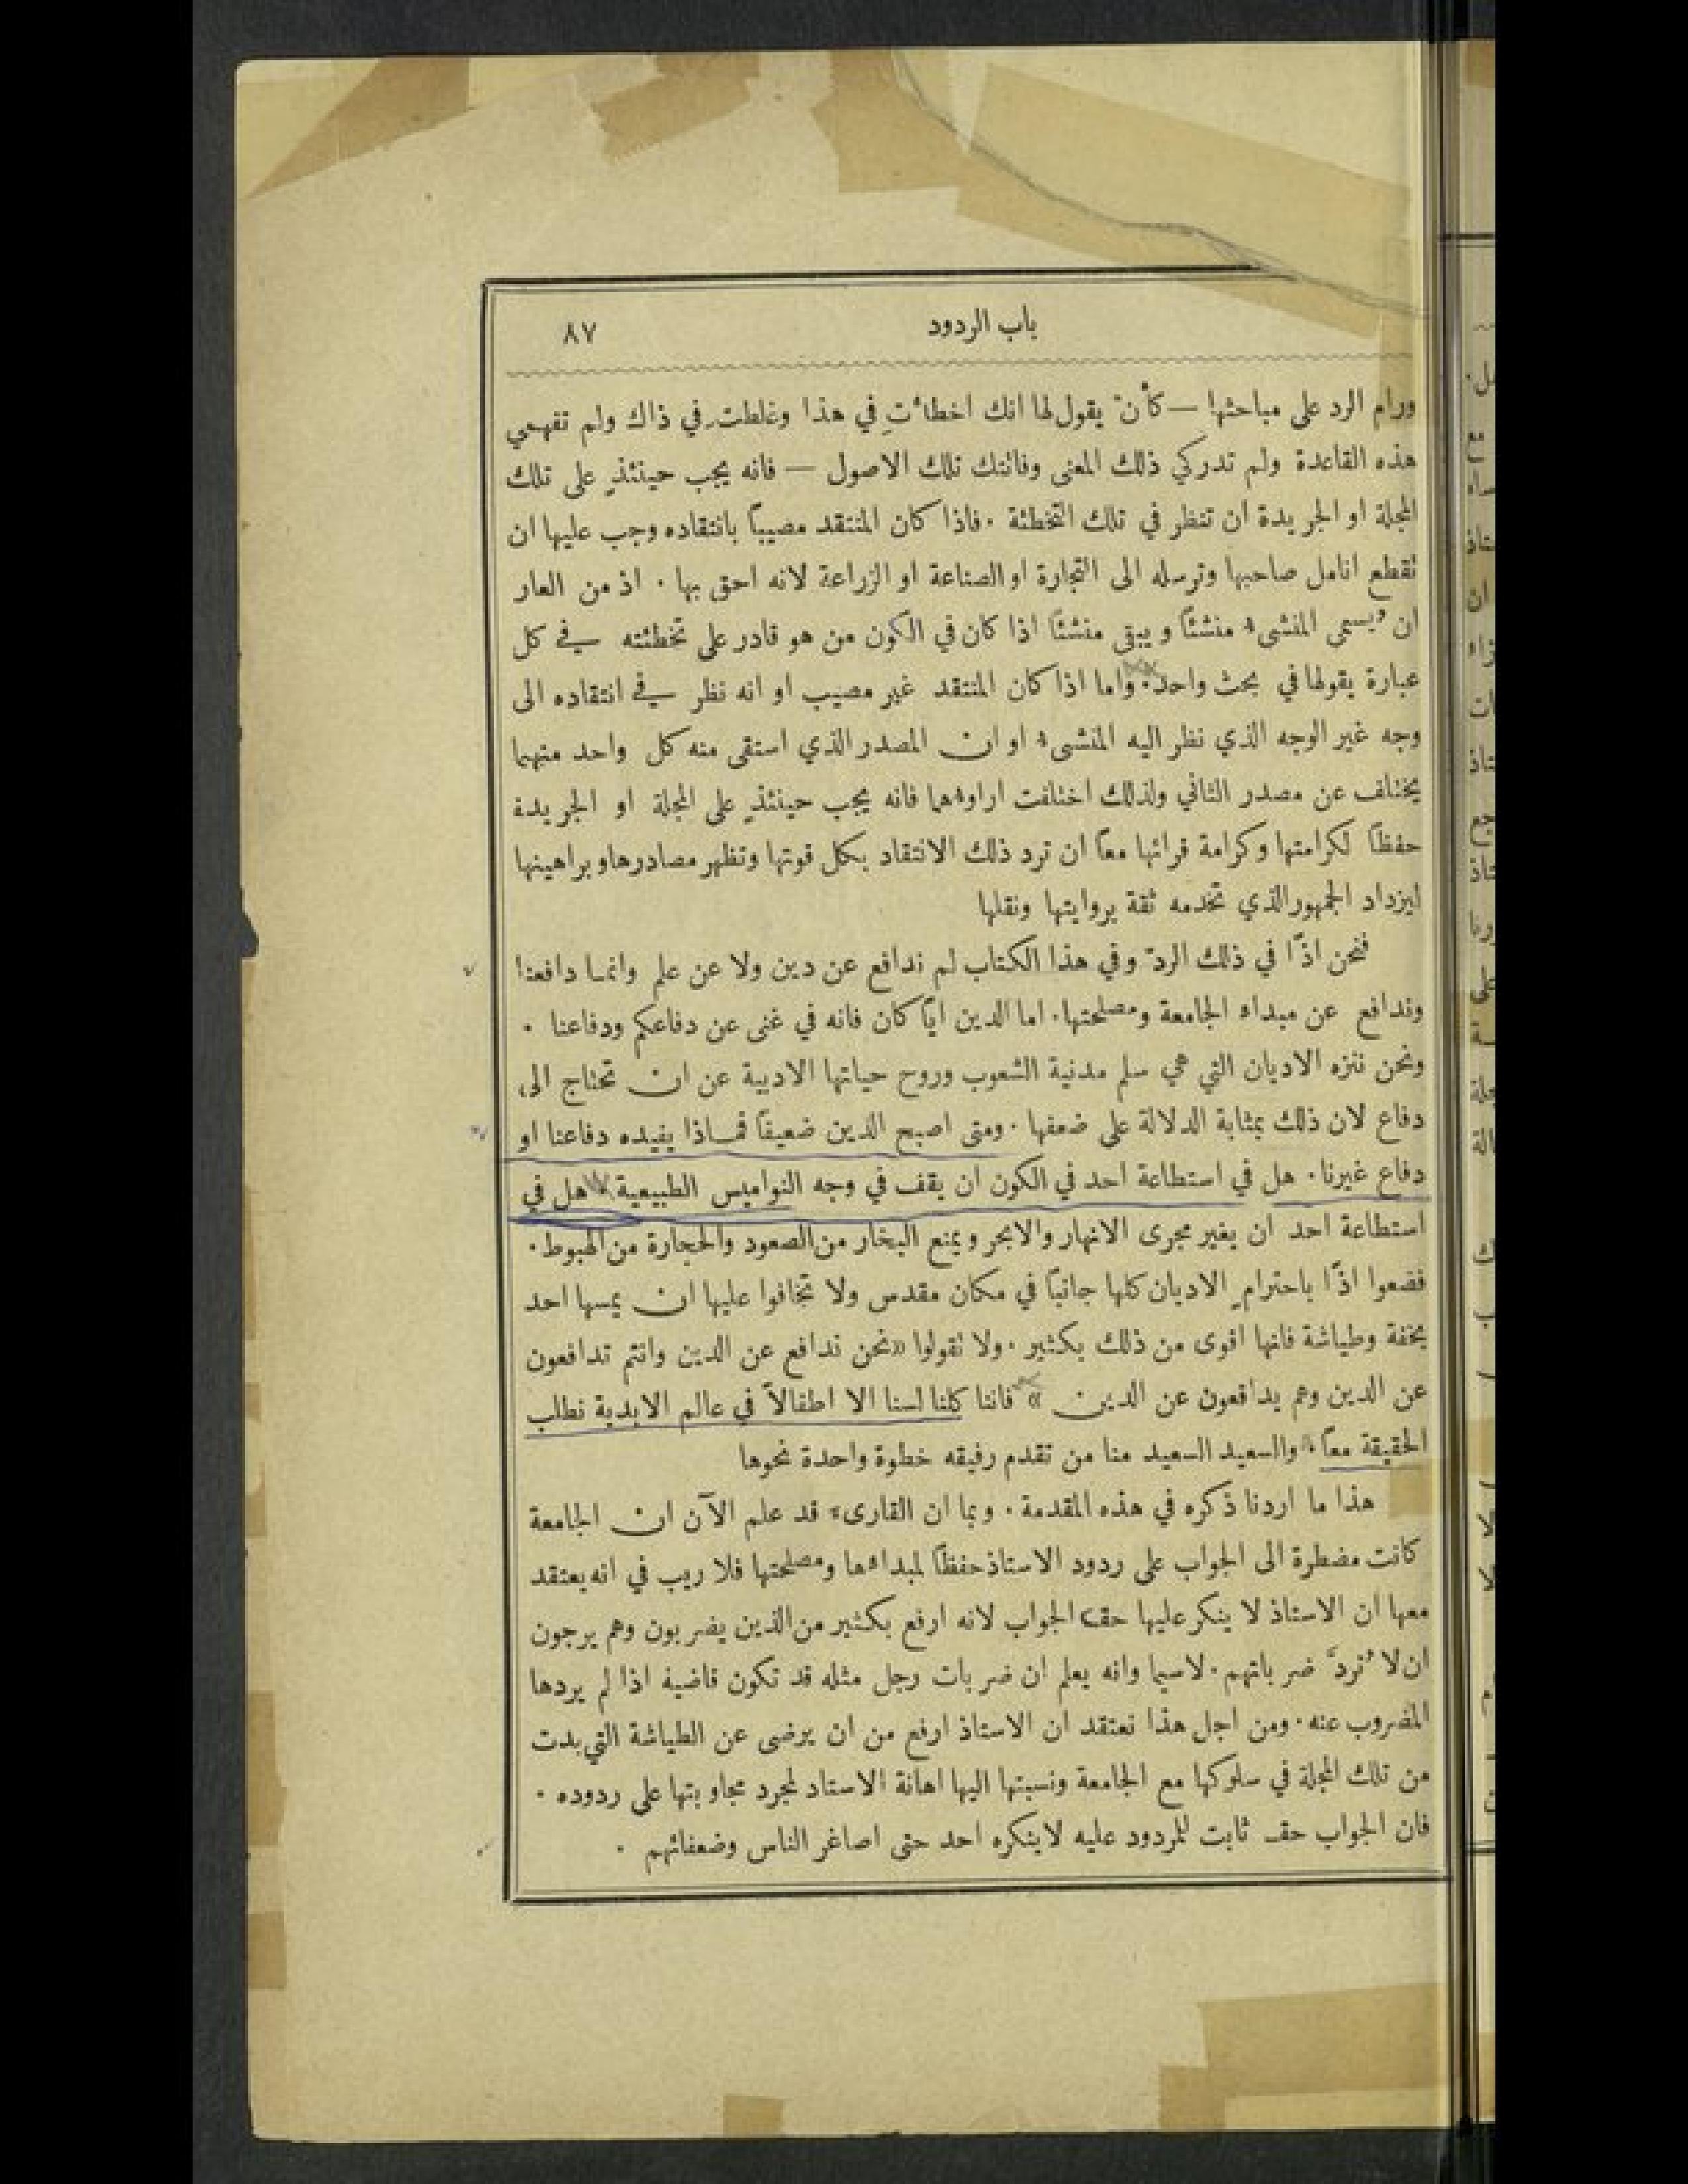 باب الردود
٨٧
ورام الرد على مباحثها — كأن يقول لها انك اخطاءتِ في هذا وغلطتِ في ذاك ولم تفهمي
هذه القاعدة ولم تدركي ذلك المعنى وفاتتك تلك الاصول — فانه يجب حينئذٍ على تلك
المجلة او الجريدة ان تنظر في تلك التخطئة . فاذا كان المنتقد مصيباً بانتقاده وجب عليها ان
تقطع انامل صاحبها وترسله الى التجارة او الصناعة او الزراعة لانه احق بها . اذ من العار
ان يُسمى المنشىء منشئاً ويبقى منشئاً اذا كان في الكون من هو قادر على تخطئته في كل
عبارة يقولها في بحث واحد . واما اذا كان المنتقد غير مصيب او انه نظر في انتقاده الى
وجه غير الوجه الذي نظر اليه المنشىء او ان المصدر الذي استقى منه كل واحد منهما
يختلف عن مصدر الثاني ولذلك اختلفت اراوءهما فانه يجب حينئذٍ على المجلة او الجريدة
حفظاً لكرامتها وكرامة قرائها معاً ان ترد ذلك الانتقاد بكل قوتها وتظهر مصادرها وبراهينها
ليزداد الجمهور الذي تخدمه ثقة بروايتها ونقلها
فنحن اذًا في ذلك الردّ وفي هذا الكتاب لم ندافع عن دين ولا عن علم وانما دافعنا
وندافع عن مبداء الجامعة ومصلحتها . اما الدين ايّاً كان فانه في غنى عن دفاعكم ودفاعنا .
ونحن ننزه الاديان التي هي سلم مدنية الشعوب وروح حياتها الادبية عن ان تحتاج الى
دفاع لان ذلك بمثابة الدلالة على ضعفها . ومتى اصبح الدين ضعيفاً فماذا يفيده دفاعنا او
دفاع غيرنا . هل في استطاعة احد في الكون ان يقف في وجه النواميس الطبيعية هل في
استطاعة احد ان يغير مجرى الانهار والابحر ويمنع البخار من الصعود والحجارة من الهبوط .
فضعوا اذًا باحترامٍ الاديان كلها جانباً في مكان مقدس ولا تخافوا عليها ان يمسها احد
بخفة وطياشة فانها اقوى من ذلك بكثير . ولا تقولوا «نحن ندافع عن الدين وانتم تدافعون
عن الدين وهم يدافعون عن الدين » فاننا كلنا لسنا الا اطفالاً في عالم الابدية نطلب
الحقيقة معاً والسعيد السعيد منا من تقدم رفيقه خطوة واحدة نحوها
هذا ما اردنا ذكره في هذه المقدمة . وبما ان القارىء قد علم الآن ان الجامعة
كانت مضطرة الى الجواب على ردود الاستاذ حفظاً لمبداءها ومصلحتها فلا ريب في انه يعتقد
معها ان الاستاذ لا ينكر عليها حق الجواب لانه ارفع بكثير من الذين يضربون وهم يرجون
ان لا تُردَّ ضرباتهم . لاسيما وانه يعلم ان ضربات رجل مثله قد تكون قاضية اذا لم يردها
المضروب عنه . ومن اجل هذا نعتقد ان الاستاذ ارفع من ان يرضى عن الطياشة التي بدت
من تلك المجلة في سلوكها مع الجامعة ونسبتها اليها اهانة الاستاد لمجرد مجاوبتها على ردوده .
فان الجواب حق ثابت للمردود عليه لاينكره احد حتى اصاغر الناس وضعفائهم .